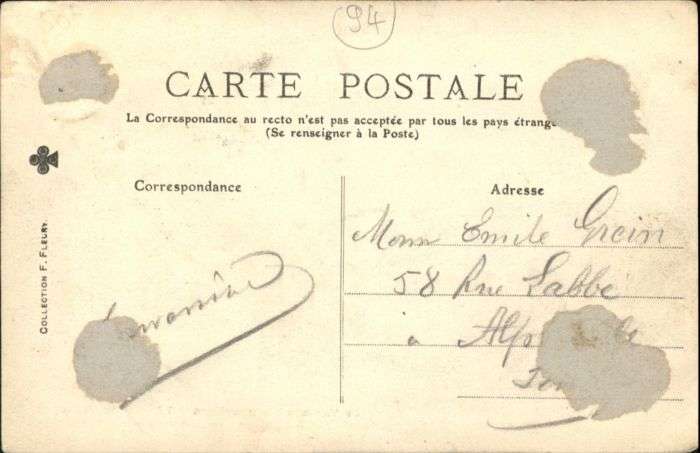 94
CARTE POSTALE
La Correspondance au recto n'est pas acceptée par tous les pays étrange
(Se renseigner à la Poste)
Correspondance
Adresse
COLLECTION F. FLEURY
Emile Grein
58 Rue Labbé
à Alfo